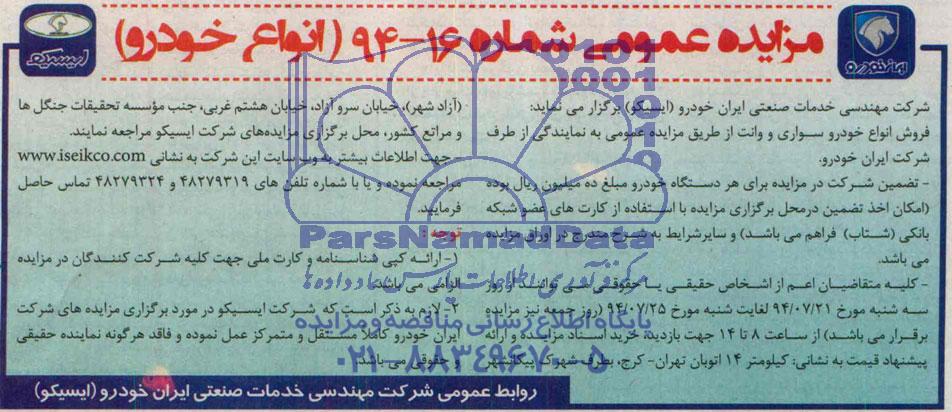 مزایده عمومی شماره ۱۶-۹۴ (انواع خودرو)
ایران خودرو
ایسیکو
شرکت مهندسی خدمات صنعتی ایران خودرو (ایسیکو) برگزار می نماید:
فروش انواع خودرو سواری و وانت از طریق مزایده عمومی به نمایندگی از طرف
شرکت ایران خودرو.
- تضمین شرکت در مزایده برای هر دستگاه خودرو مبلغ ده میلیون ریال بوده
(امکان اخذ تضمین درمحل برگزاری مزایده با استفاده از کارت های عضو شبکه
بانکی (شتاب) فراهم می باشد) و سایرشرایط به شرح مندرج در اوراق مزایده
می باشد.
- کلیه متقاضیان اعم از اشخاص حقیقی یا حقوقی می توانند از روز
سه شنبه مورخ ۹۴/۰۷/۲۱ لغایت شنبه مورخ ۹۴/۰۷/۲۵ (روز جمعه نیز مزایده
برقرار می باشد) از ساعت ۸ تا ۱۴ جهت بازدید، خرید اسناد مزایده و ارائه
پیشنهاد قیمت به نشانی: کیلومتر ۱۴ اتوبان تهران- کرج، بطرف شهرک پیکانشهر
(آزاد شهر)، خیابان سرو آزاد، خیابان هشتم غربی، جنب مؤسسه تحقیقات جنگل ها
و مراتع کشور، محل برگزاری مزایده‌های شرکت ایسیکو مراجعه نمایند.
- جهت اطلاعات بیشتر به وب سایت این شرکت به نشانی www.iseikco.com
مراجعه نموده و یا با شماره تلفن های ۴۸۲۷۹۳۱۹ و ۴۸۲۷۹۳۲۴ تماس حاصل
فرمایید.
توجه :
۱- ارائه کپی شناسنامه و کارت ملی جهت کلیه شرکت کنندگان در مزایده
الزامی می باشد.
۲- لازم به ذکر است که شرکت ایسیکو در مورد برگزاری مزایده های شرکت
ایران خودرو کاملا مستقل و متمرکز عمل نموده و فاقد هرگونه نماینده حقیقی
و حقوقی می باشد.
روابط عمومی شرکت مهندسی خدمات صنعتی ایران خودرو (ایسیکو)
ParsNamadData
پایگاه اطلاع رسانی مناقصه و مزایده
۰۲۱-۸۸۳۴۹۶۷۰-۵